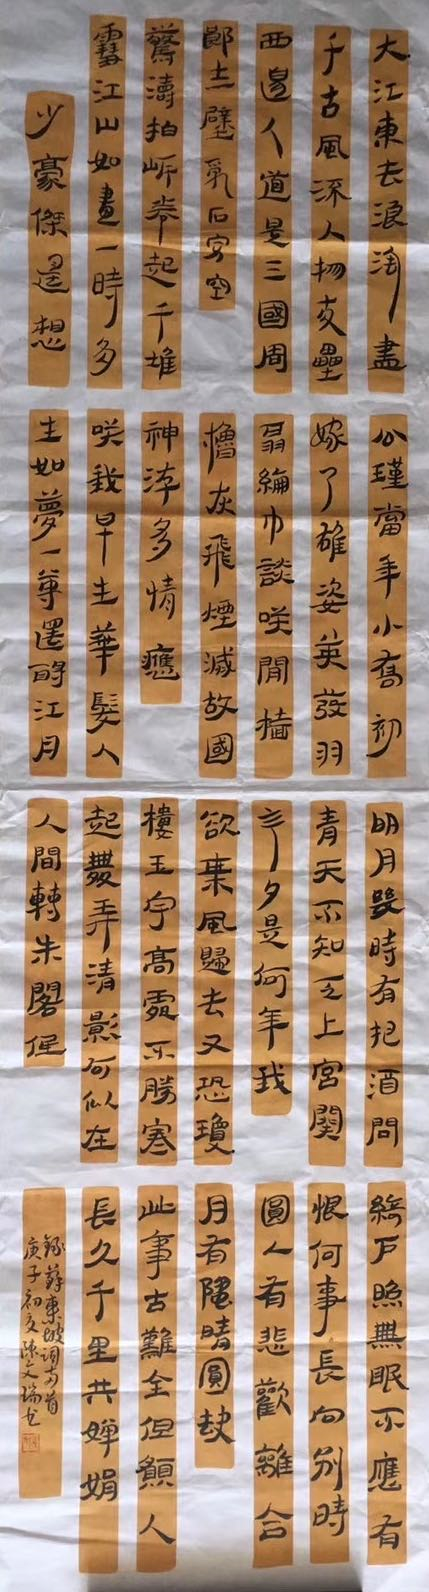 大江東去浪淘盡
千古風流人物故壘
西邊人道是三國周
郎赤壁亂石穿空
驚濤拍岸卷起千堆
雪江山如畫一時多
少豪傑遥想
公瑾當年小喬初
嫁了雄姿英發羽
扇綸巾談咲間檣
櫓灰飛煙滅故國
神游多情應
咲我早生華髮人
生如夢一尊還酹江月
明月幾時有把酒問
青天不知天上宮闕
今夕是何年我
欲乘風歸去又恐瓊
樓玉宇高處不勝寒
起舞弄清影何似在
人間轉朱閣低
綺戶照無眠不應有
恨何事長向別時
圓人有悲歡離合
月有陰晴圓缺
此事古難全但願人
長久千里共嬋娟
錄蘇東坡詞兩首
庚子初夏陳文瑞書